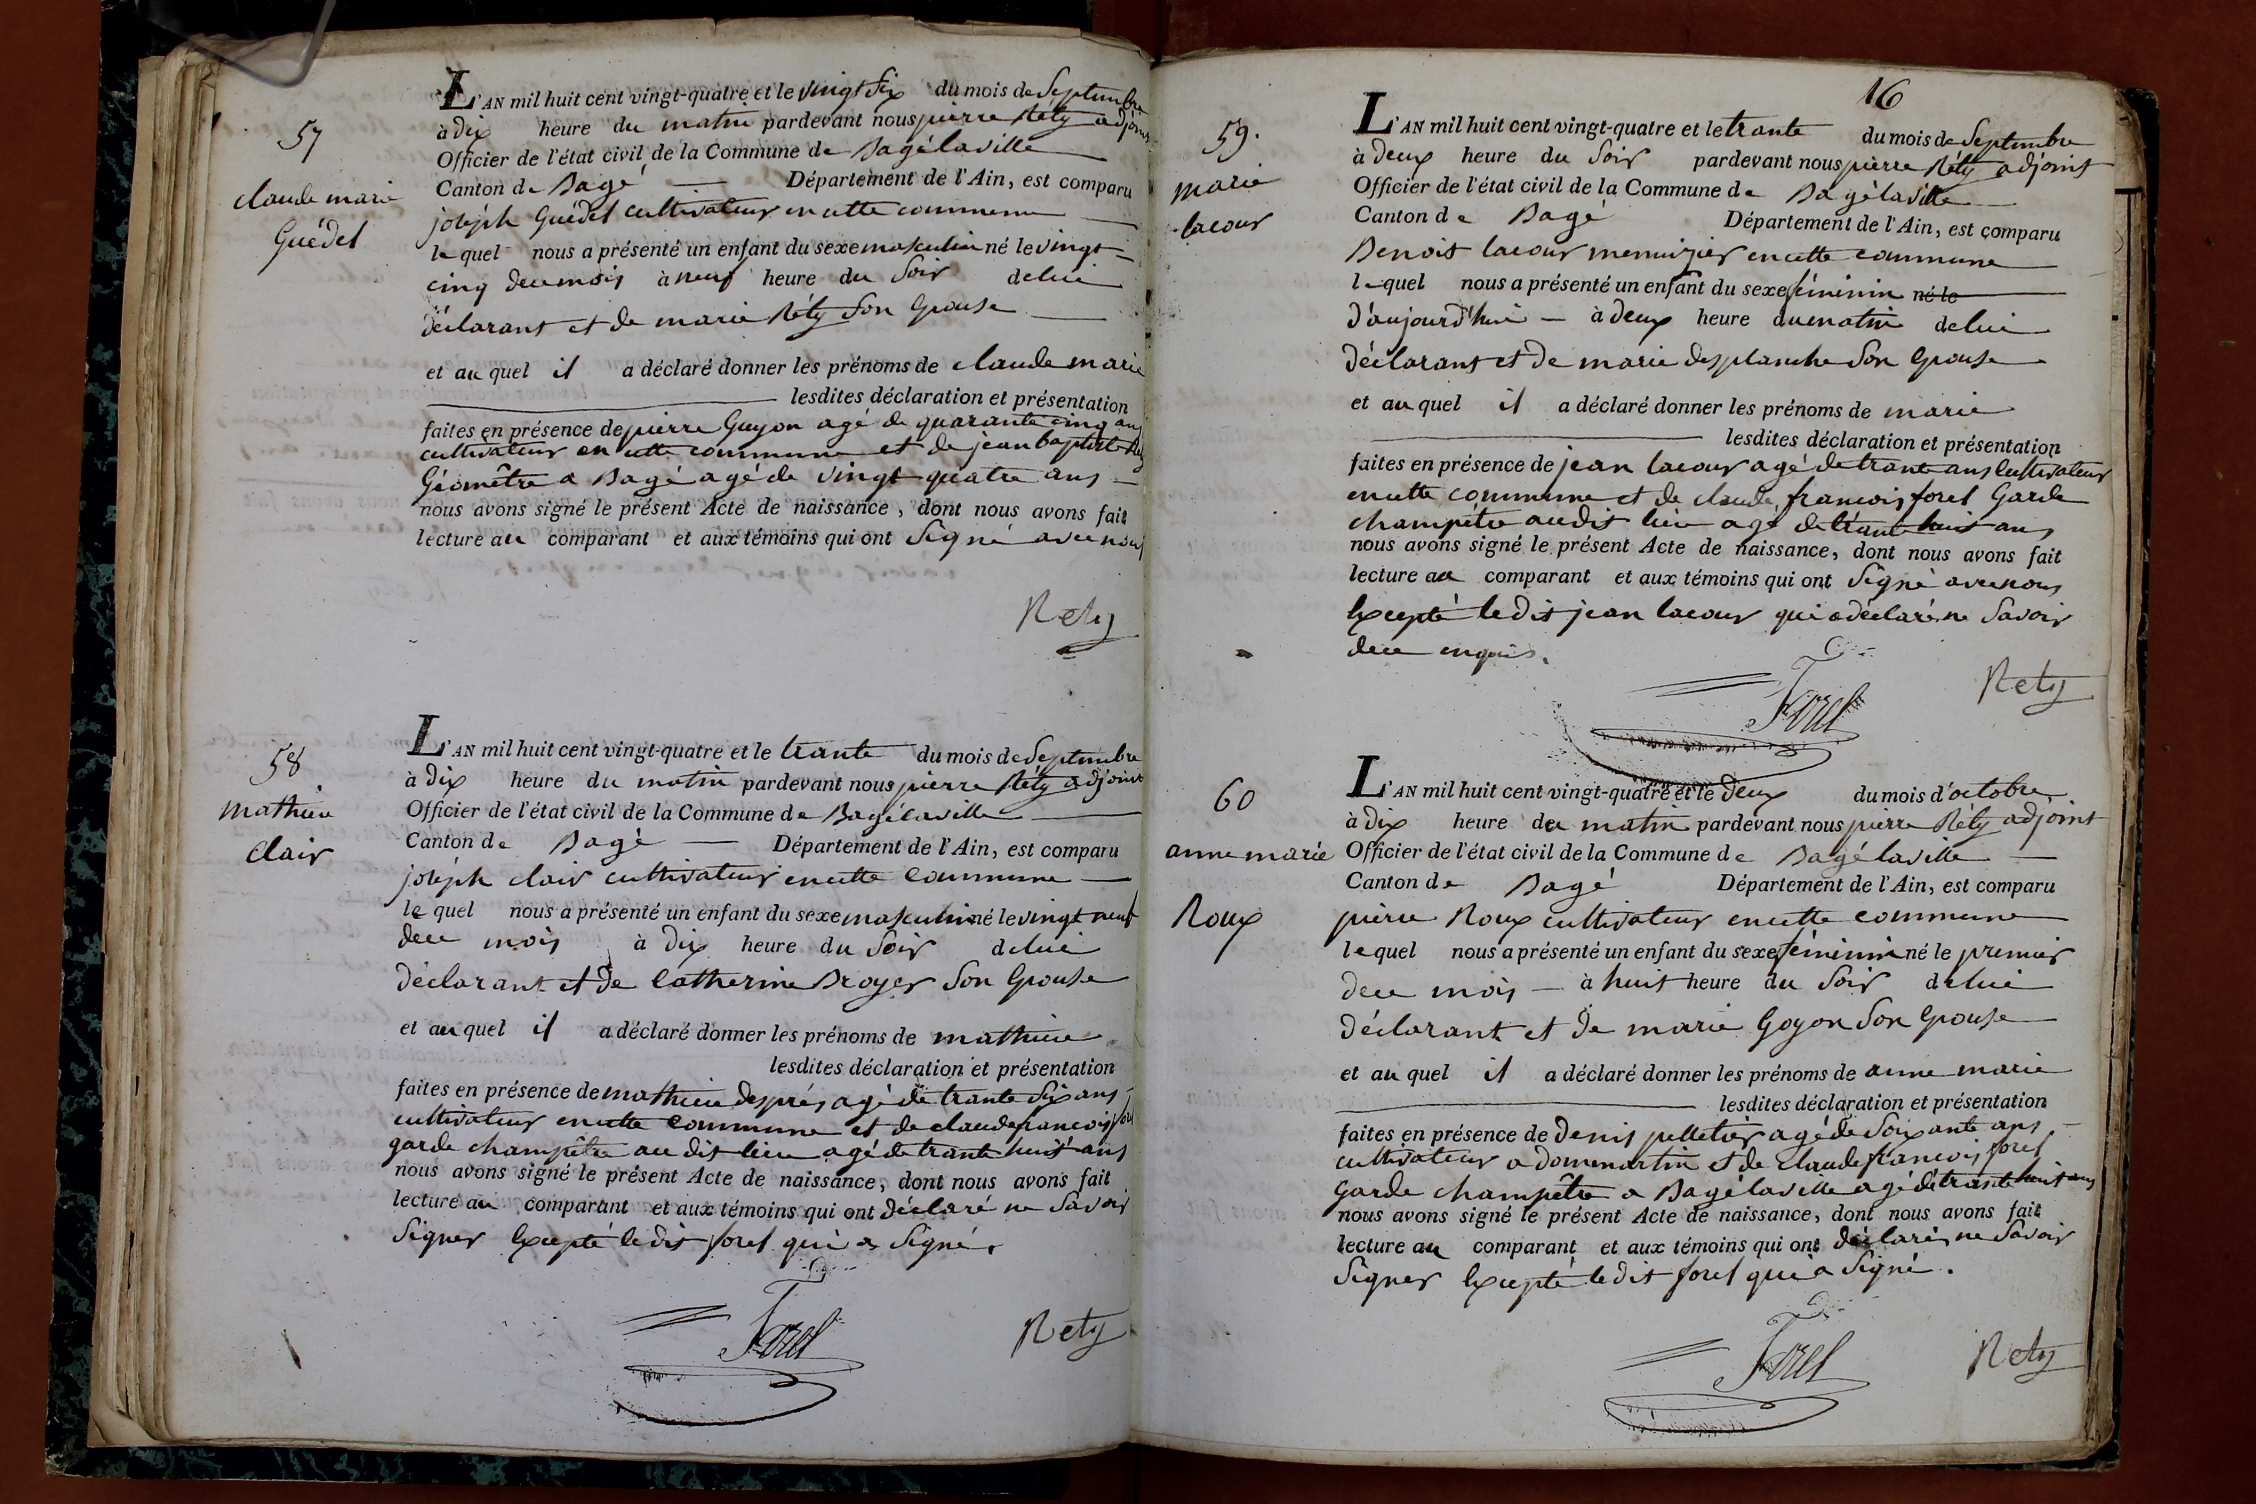 57
claude marie
Guédel
L'AN mil huit cent vingt-quatre et le vingt six du mois de Septembre
à dix heure du matin pardevant nous pierre Réty adjoint
Officier de l'état civil de la Commune de Bagélaville
Canton de Bagé Département de l'Ain, est comparu
joséph Guédel cultivateur en cette commune
le quel nous a présenté un enfant du sexe masculin né le vingt
cinq de ce mois à neuf heure du Soir de lui
déclarant et de marie Réty Son Epouse
et au quel il a déclaré donner les prénoms de claude marie
lesdites déclaration et présentation
faites en présence de pierre Guyon agé de quarante cinq ans
cultivateur en cette commune et de jean baptiste
Géomètre a Bagé agé de vingt quatre ans
nous avons signé le présent Acte de naissance, dont nous avons fait
lecture au comparant et aux témoins qui ont Signé avec nous
Rety
58
mathieu
clair
L'AN mil huit cent vingt-quatre et le trante du mois de Septembre
à dix heure du matin pardevant nous pierre Réty adjoint
Officier de l'état civil de la Commune de Bagélaville
Canton de Bagé Département de l'Ain, est comparu
joséph clair cultivateur en cette commune
le quel nous a présenté un enfant du sexe masculin né le vingt neuf
de ce mois à dix heure du Soir de lui
déclarant et de Catherine Broyer Son Epouse
et au quel il a déclaré donner les prénoms de mathieu
lesdites déclaration et présentation
faites en présence de mathieu després agé de trante Six ans
cultivateur en cette commune et de claude francois forel
garde champêtre au dit lieu agé de trante huit ans
nous avons signé le présent Acte de naissance, dont nous avons fait
lecture au comparant et aux témoins qui ont déclaré ne Savoir
Signer Excepté le dit forel qui a Signé.
Forel
Rety
16
59.
marie
lacour
L'AN mil huit cent vingt-quatre et le trante du mois de Septembre
à deux heure du Soir pardevant nous pierre Réty adjoint
Officier de l'état civil de la Commune de Bagélaville
Canton de Bagé Département de l'Ain, est comparu
Benoit lacour menuizier en cette commune
le quel nous a présenté un enfant du sexe féminin né le
d'aujourd'hui à deux heure du matin de lui
déclarant et de marie desplanche Son Epouse
et au quel il a déclaré donner les prénoms de marie
lesdites déclaration et présentation
faites en présence de jean lacour agé de trante ans Cultivateur
en cette commune et de claude francois forel Garde
champêtre au dit lieu agé de trante huit ans
nous avons signé le présent Acte de naissance, dont nous avons fait
lecture au comparant et aux témoins qui ont Signé avec nous
Excepté le dit jean lacour qui a déclaré ne Savoir
de ce enquis.
Forel
Rety
60
anne marie
Roux
L'AN mil huit cent vingt-quatre et le deux du mois d'octobre
à dix heure du matin pardevant nous pierre Réty adjoint
Officier de l'état civil de la Commune de Bagélaville
Canton de Bagé Département de l'Ain, est comparu
pierre Roux cultivateur en cette commune
le quel nous a présenté un enfant du sexe féminin né le premier
de ce mois à huit heure du Soir de lui
déclarant et de marie Goyon Son Epouse
et au quel il a déclaré donner les prénoms de anne marie
lesdites déclaration et présentation
faites en présence de denis pelletier agé de Soixante ans
cultivateur a domemartin et de claude francois forel
Garde champêtre a Bagélaville agé de trante huit ans
nous avons signé le présent Acte de naissance, dont nous avons fait
lecture au comparant et aux témoins qui ont déclaré ne Savoir
Signer Excepté le dit forel qui a Signé.
Forel
Rety